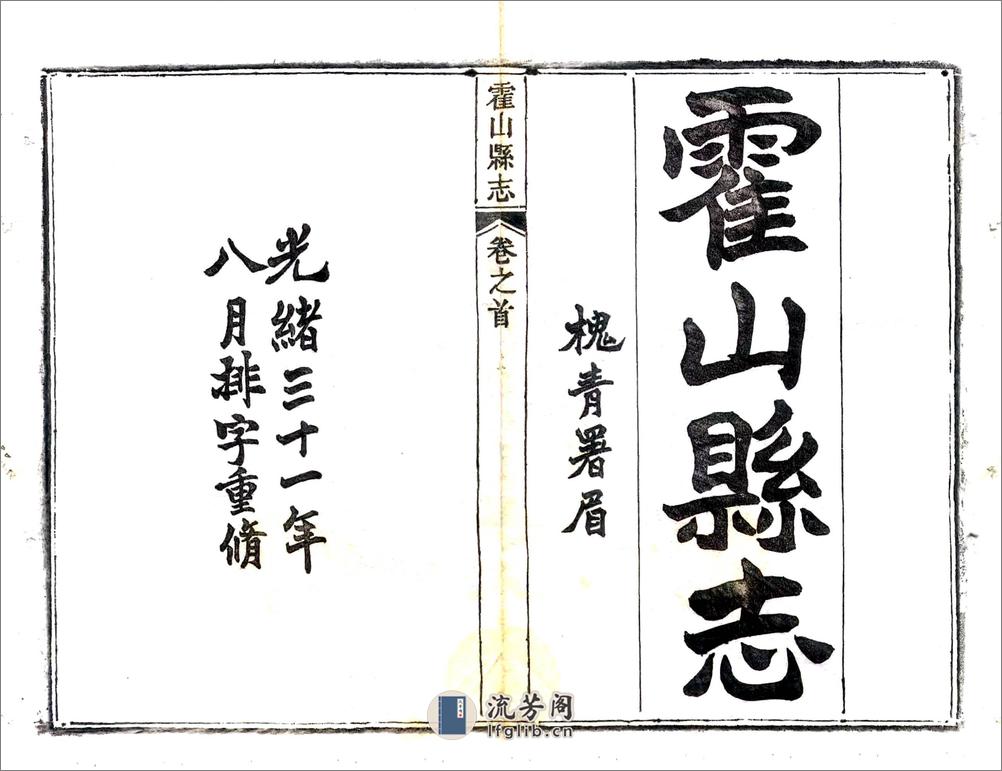 霍山縣志
槐青署眉
霍山縣志
卷之首
光緒三十一年
八月排字重脩
流芳阁
lfglib.cn